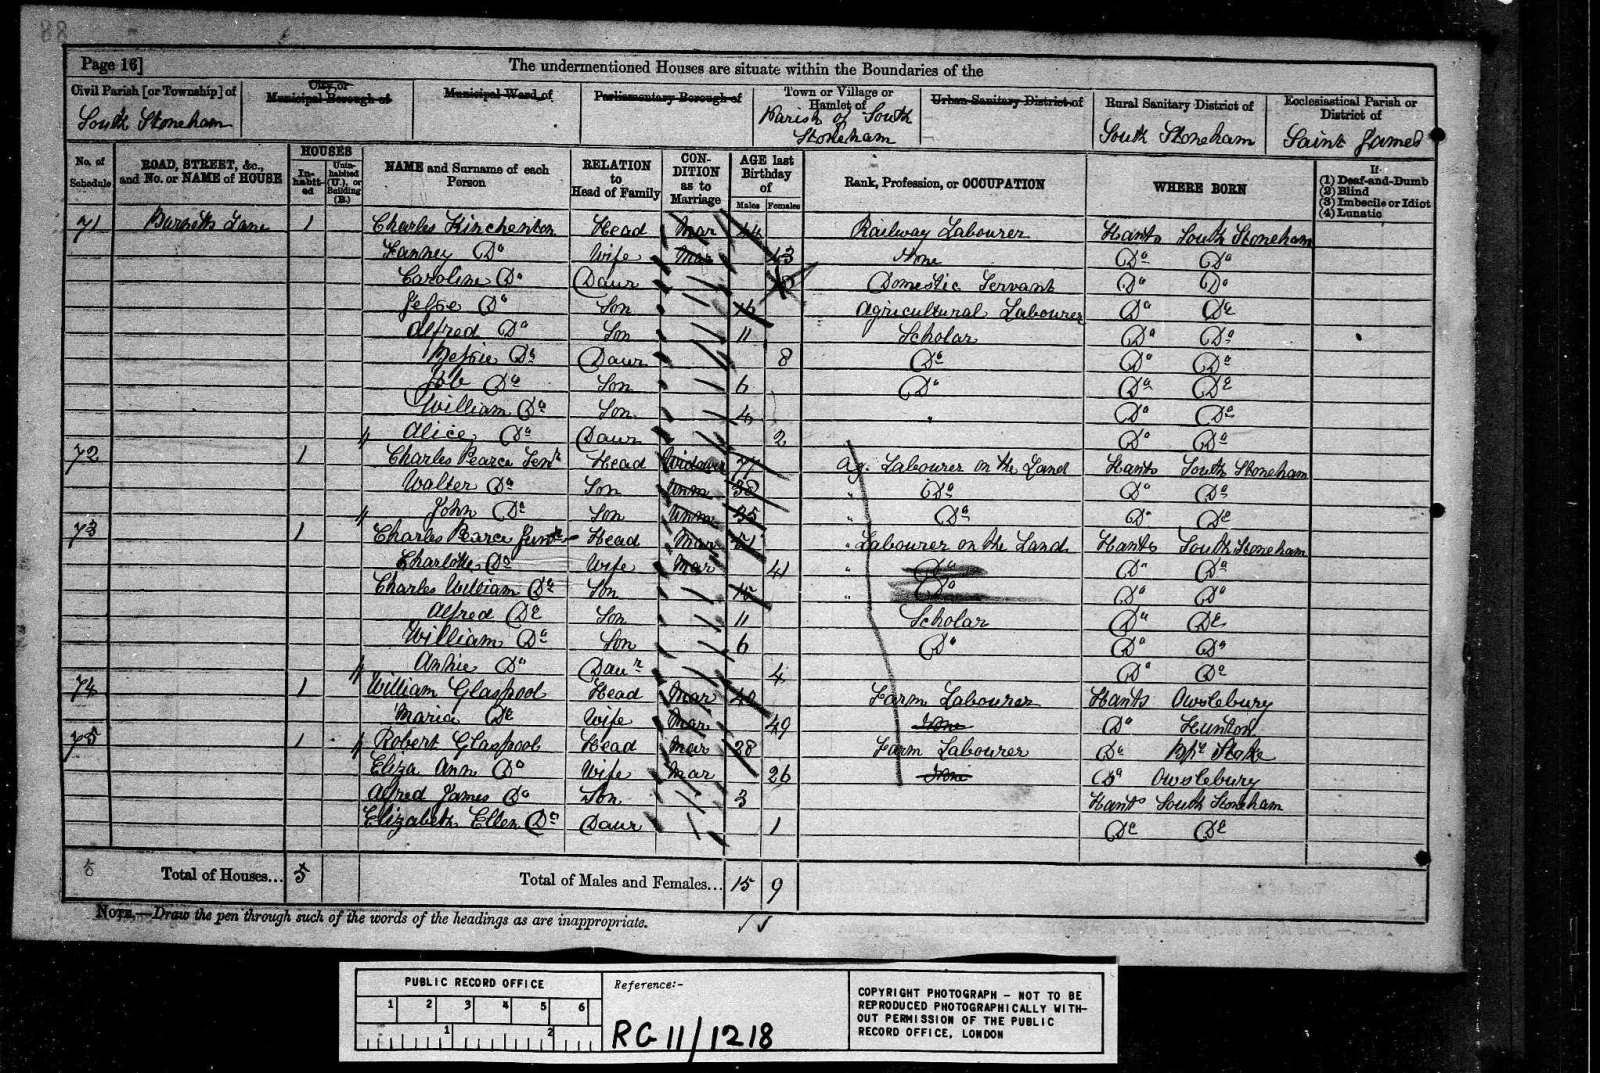 88
Page 16] The undermentioned Houses are situate within the Boundaries of the
Civil Parish [or Township] of City or Municipal Borough of Municipal Ward of Parliamentary Borough of Town or Village or Hamlet of Urban Sanitary District of Rural Sanitary District of Ecclesiastical Parish or District of
South Stoneham Parish of South Stoneham South Stoneham Saint James
No. of Schedule ROAD, STREET, &c., and No. or NAME of HOUSE HOUSES In-habit-ed Unin-habited (U.), or Building (B.) NAME and Surname of each Person RELATION to Head of Family CON-DITION as to Marriage AGE last Birthday of Males Females Rank, Profession, or OCCUPATION WHERE BORN If (1) Deaf-and-Dumb (2) Blind (3) Imbecile or Idiot (4) Lunatic
71 Lane 1 Charles Kinchenton Head Mar 44 Railway Labourer Hants South Stoneham
Fanney Do Wife Mar 43 Do Do
Caroline Do Daur Domestic Servant Do Do
Jesse Do Son 16 Agricultural Labourer Do Do
Alfred Do Son 11 Scholar Do Do
Bessie Do Daur 8 Do Do Do
Job Do Son 6 Do Do Do
William Do Son 4 Do Do
Alice Do Daur 2 Do Do
72 1 Charles Pearce Senr Head Widower 77 Ag. Labourer on the Land Hants South Stoneham
Walter Do Son Unm Do Do Do
John Do Son Unm 25 Do Do Do
73 1 Charles Pearce Junr Head Mar 51 Labourer on the Land Hants South Stoneham
Charlotte Do Wife Mar 41 Do Do Do
Charles William Do Son 15 Do Do Do
Alfred Do Son 11 Scholar Do Do
William Do Son 6 Do Do Do
Annie Do Daur 4 Do Do
74 1 William Glaspool Head Mar Farm Labourer Hants Owslebury
Maria Do Wife Mar 49 Do Hunton
75 1 Robert Glaspool Head Mar 28 Farm Labourer Do Bp Stoke
Eliza Ann Do Wife Mar 26 Do Owslebury
Alfred James Do Son 3 Hants South Stoneham
Elizabeth Ellen Do Daur 1 Do Do
5 Total of Houses... 5 Total of Males and Females... 15 9
NOTE.—Draw the pen through such of the words of the headings as are inappropriate.
PUBLIC RECORD OFFICE
1 2 3 4 5 6
1 2
Reference:-
RG 11/1218
COPYRIGHT PHOTOGRAPH - NOT TO BE
REPRODUCED PHOTOGRAPHICALLY WITH-
OUT PERMISSION OF THE PUBLIC
RECORD OFFICE, LONDON